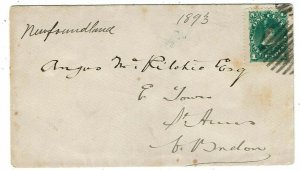 Newfoundland
1893
Angus McRitchie Esq
E Town
St Anns
C. Breton